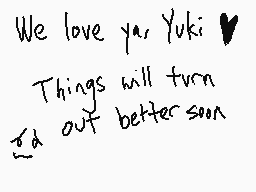 We love ya, Yuki ♥
Things will turn
out better soon